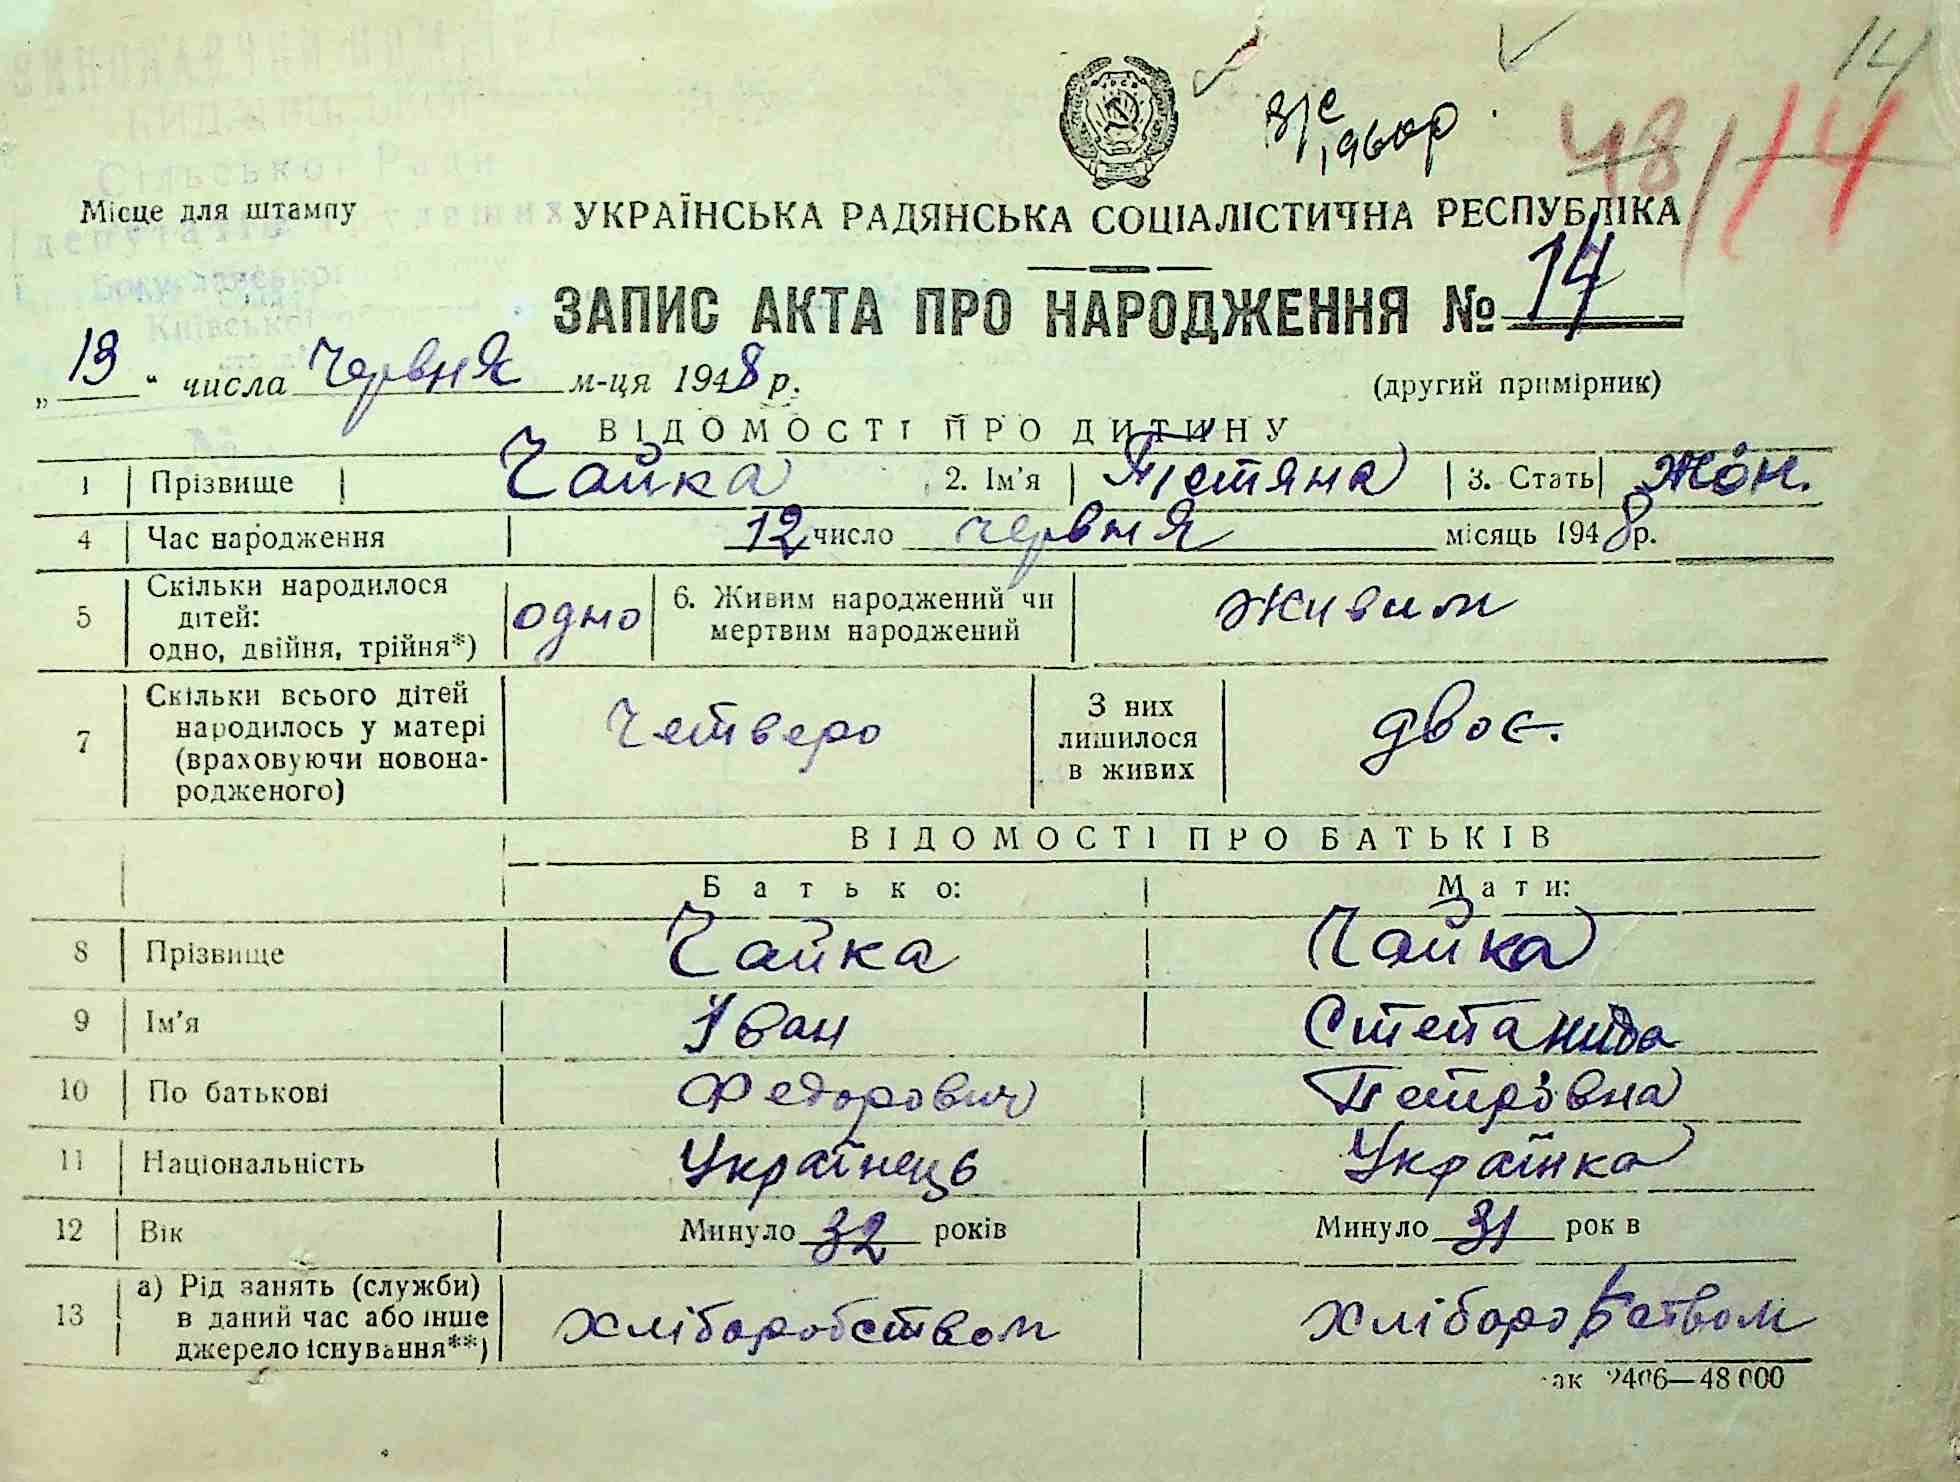 14
48/14
Сільської Ради
Місце для штампу
УКРАЇНСЬКА РАДЯНСЬКА СОЦІАЛІСТИЧНА РЕСПУБЛІКА
ЗАПИС АКТА ПРО НАРОДЖЕННЯ № 14
„13“ числа Червня м-ця 1948 р.
(другий примірник)
ВІДОМОСТІ ПРО ДИТИНУ
1 Прізвище Чайка 2. Ім'я Тетяна 3. Стать Жін.
4 Час народження 12 число червня місяць 1948 р.
5 Скільки народилося
дітей:
одно, двійня, трійня*) одно 6. Живим народжений чи
мертвим народжений живим
7 Скільки всього дітей
народилось у матері
(враховуючи новона-
родженого) Четверо З них
лишилося
в живих двоє.
ВІДОМОСТІ ПРО БАТЬКІВ
Батько: Мати:
8 Прізвище Чайка Чайка
9 Ім'я Іван Степанида
10 По батькові Федорович Петрівна
11 Національність Українець Українка
12 Вік Минуло 32 років Минуло 31 рок в
13 а) Рід занять (служби)
в даний час або інше
джерело існування**) хліборобством хліборобством
ак 2406—48 000